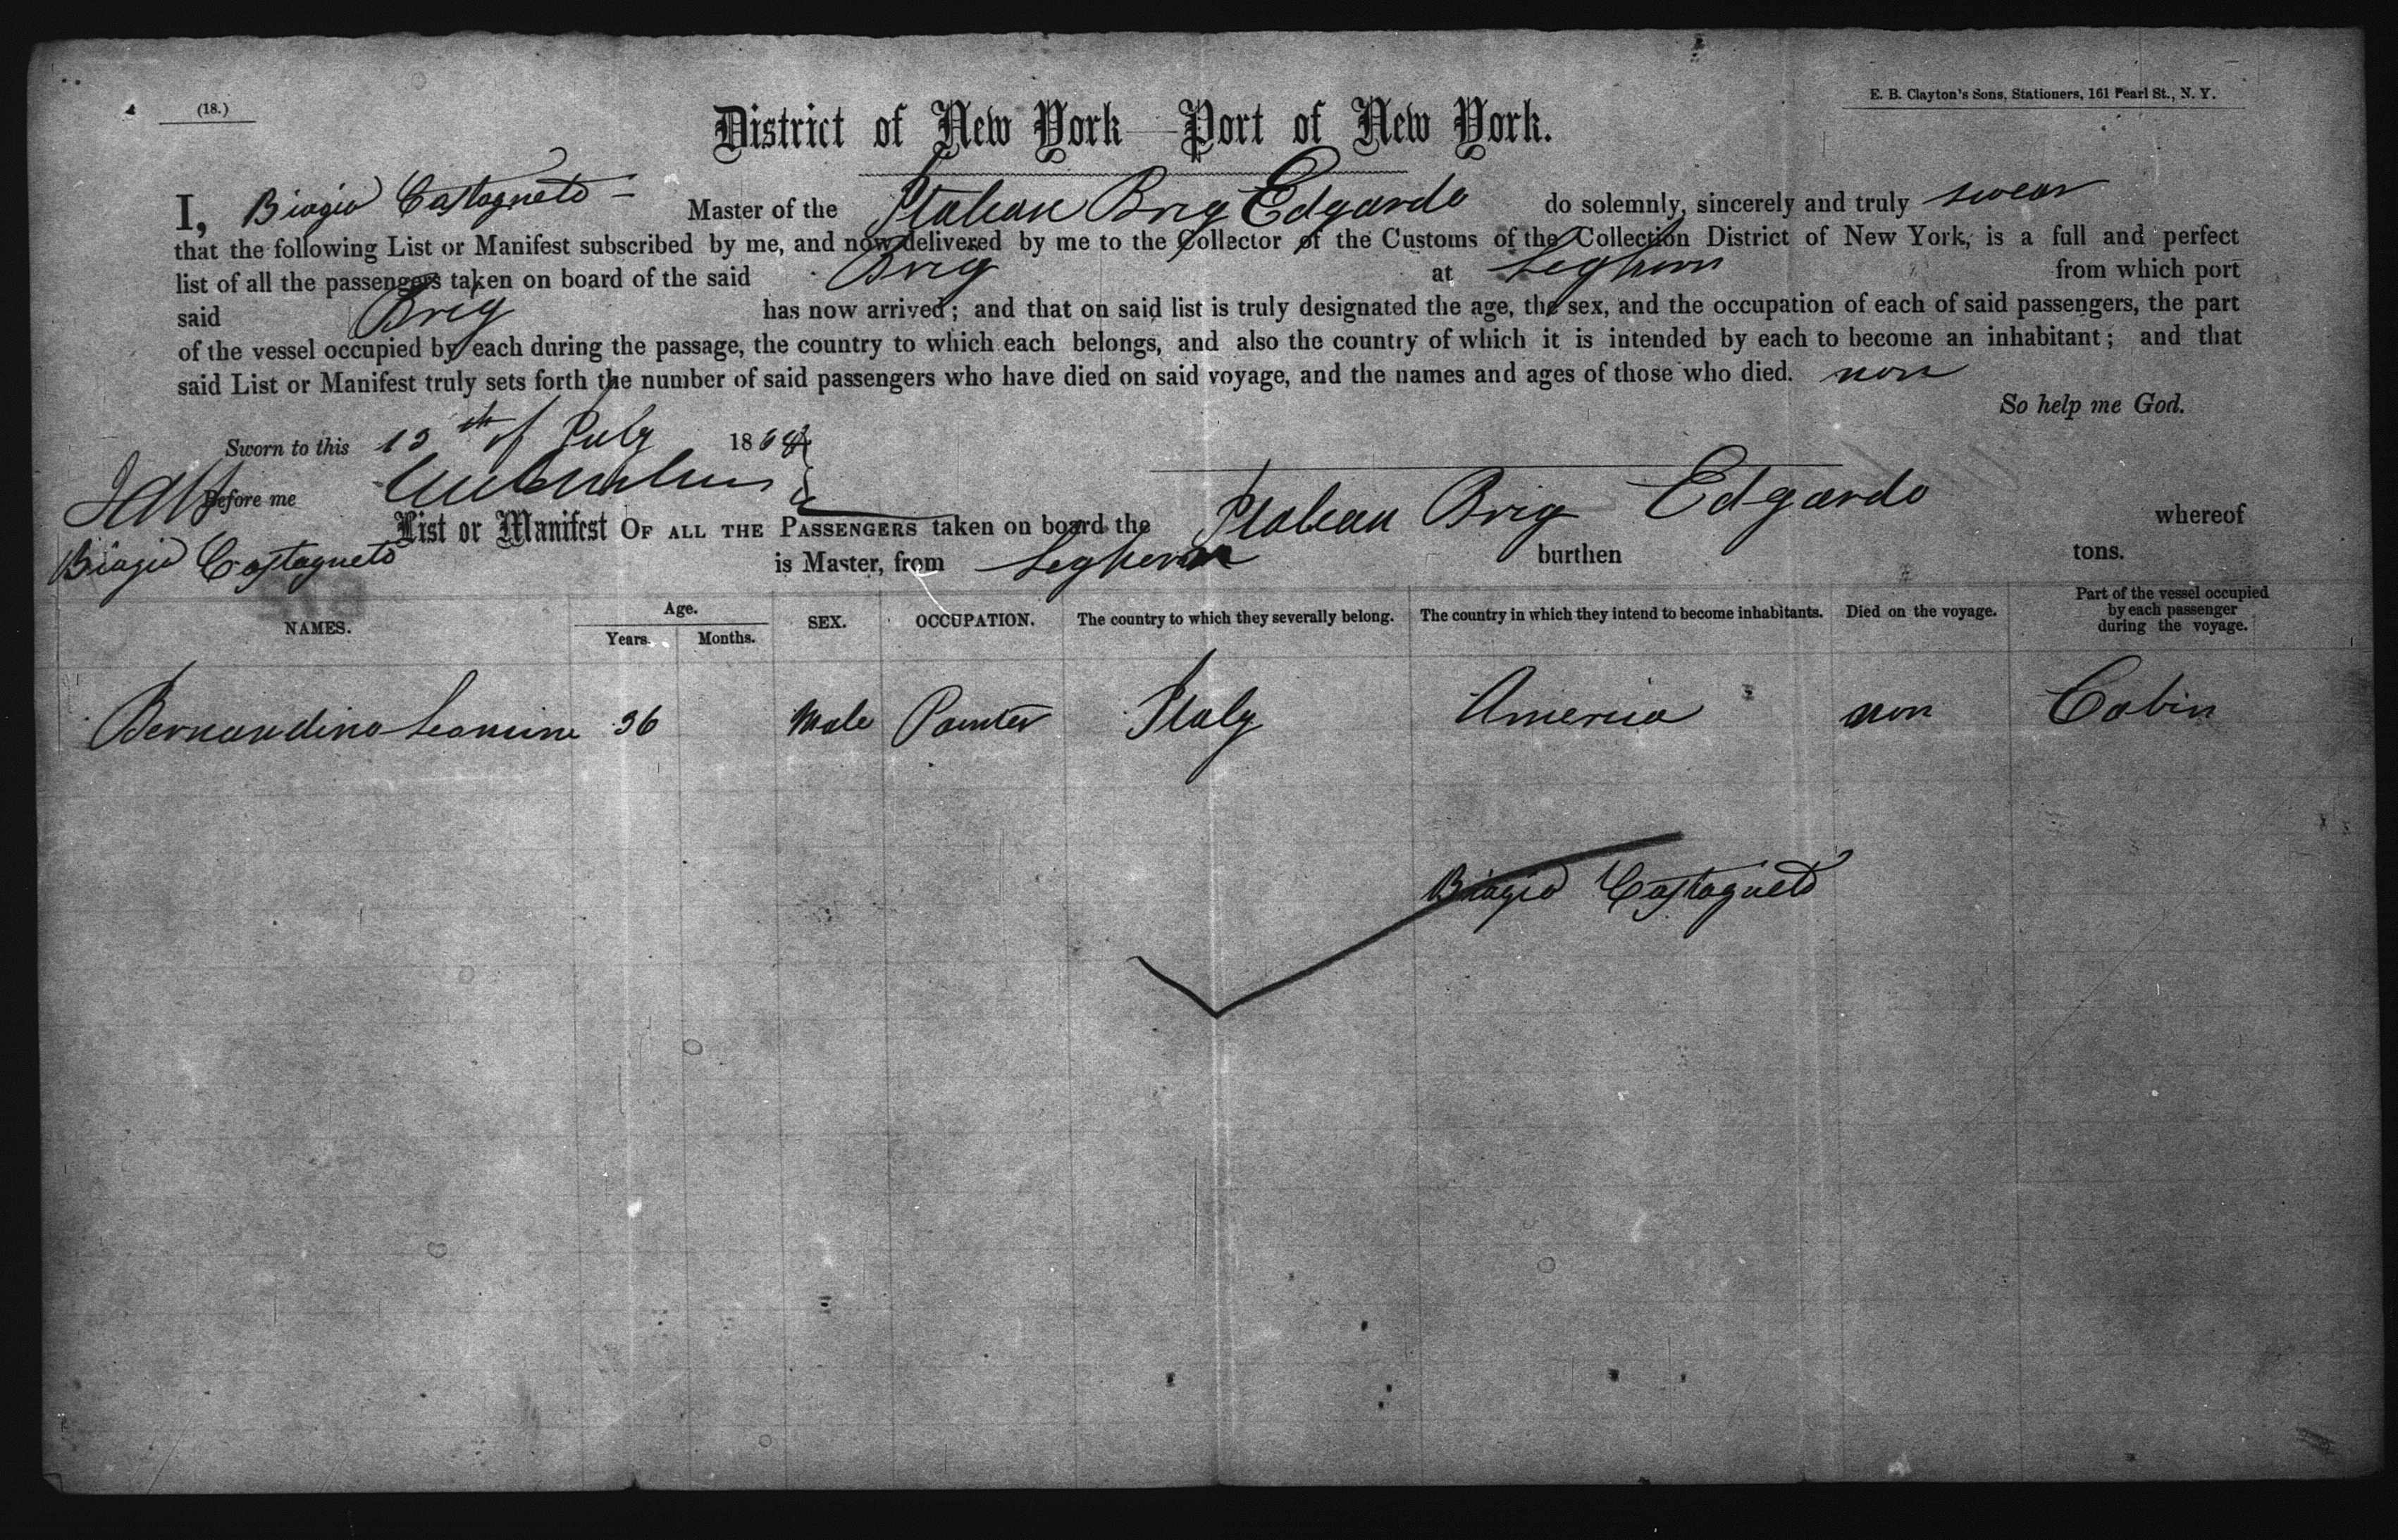 (18.)
E. B. Clayton's Sons, Stationers, 161 Pearl St., N. Y.
District of New York—Port of New York.
I, Biagio Castagneto – Master of the Italian Brig Edgardo do solemnly, sincerely and truly swear
that the following List or Manifest subscribed by me, and now delivered by me to the Collector of the Customs of the Collection District of New York, is a full and perfect
list of all the passengers taken on board of the said Brig at Leghorn from which port
said Brig has now arrived; and that on said list is truly designated the age, the sex, and the occupation of each of said passengers, the part
of the vessel occupied by each during the passage, the country to which each belongs, and also the country of which it is intended by each to become an inhabitant; and that
said List or Manifest truly sets forth the number of said passengers who have died on said voyage, and the names and ages of those who died. non
So help me God.
Sworn to this 15th of July 186
Before me
List or Manifest OF ALL THE PASSENGERS taken on board the Italian Brig Edgardo whereof
Biagio Castagneto is Master, from Leghorn burthen tons.
NAMES.
Age.
Years. Months.
SEX.
OCCUPATION.
The country to which they severally belong.
The country in which they intend to become inhabitants.
Died on the voyage.
Part of the vessel occupied
by each passenger
during the voyage.
Bernardino 36 Male Painter Italy America non Cabin
Biagio Castagneto